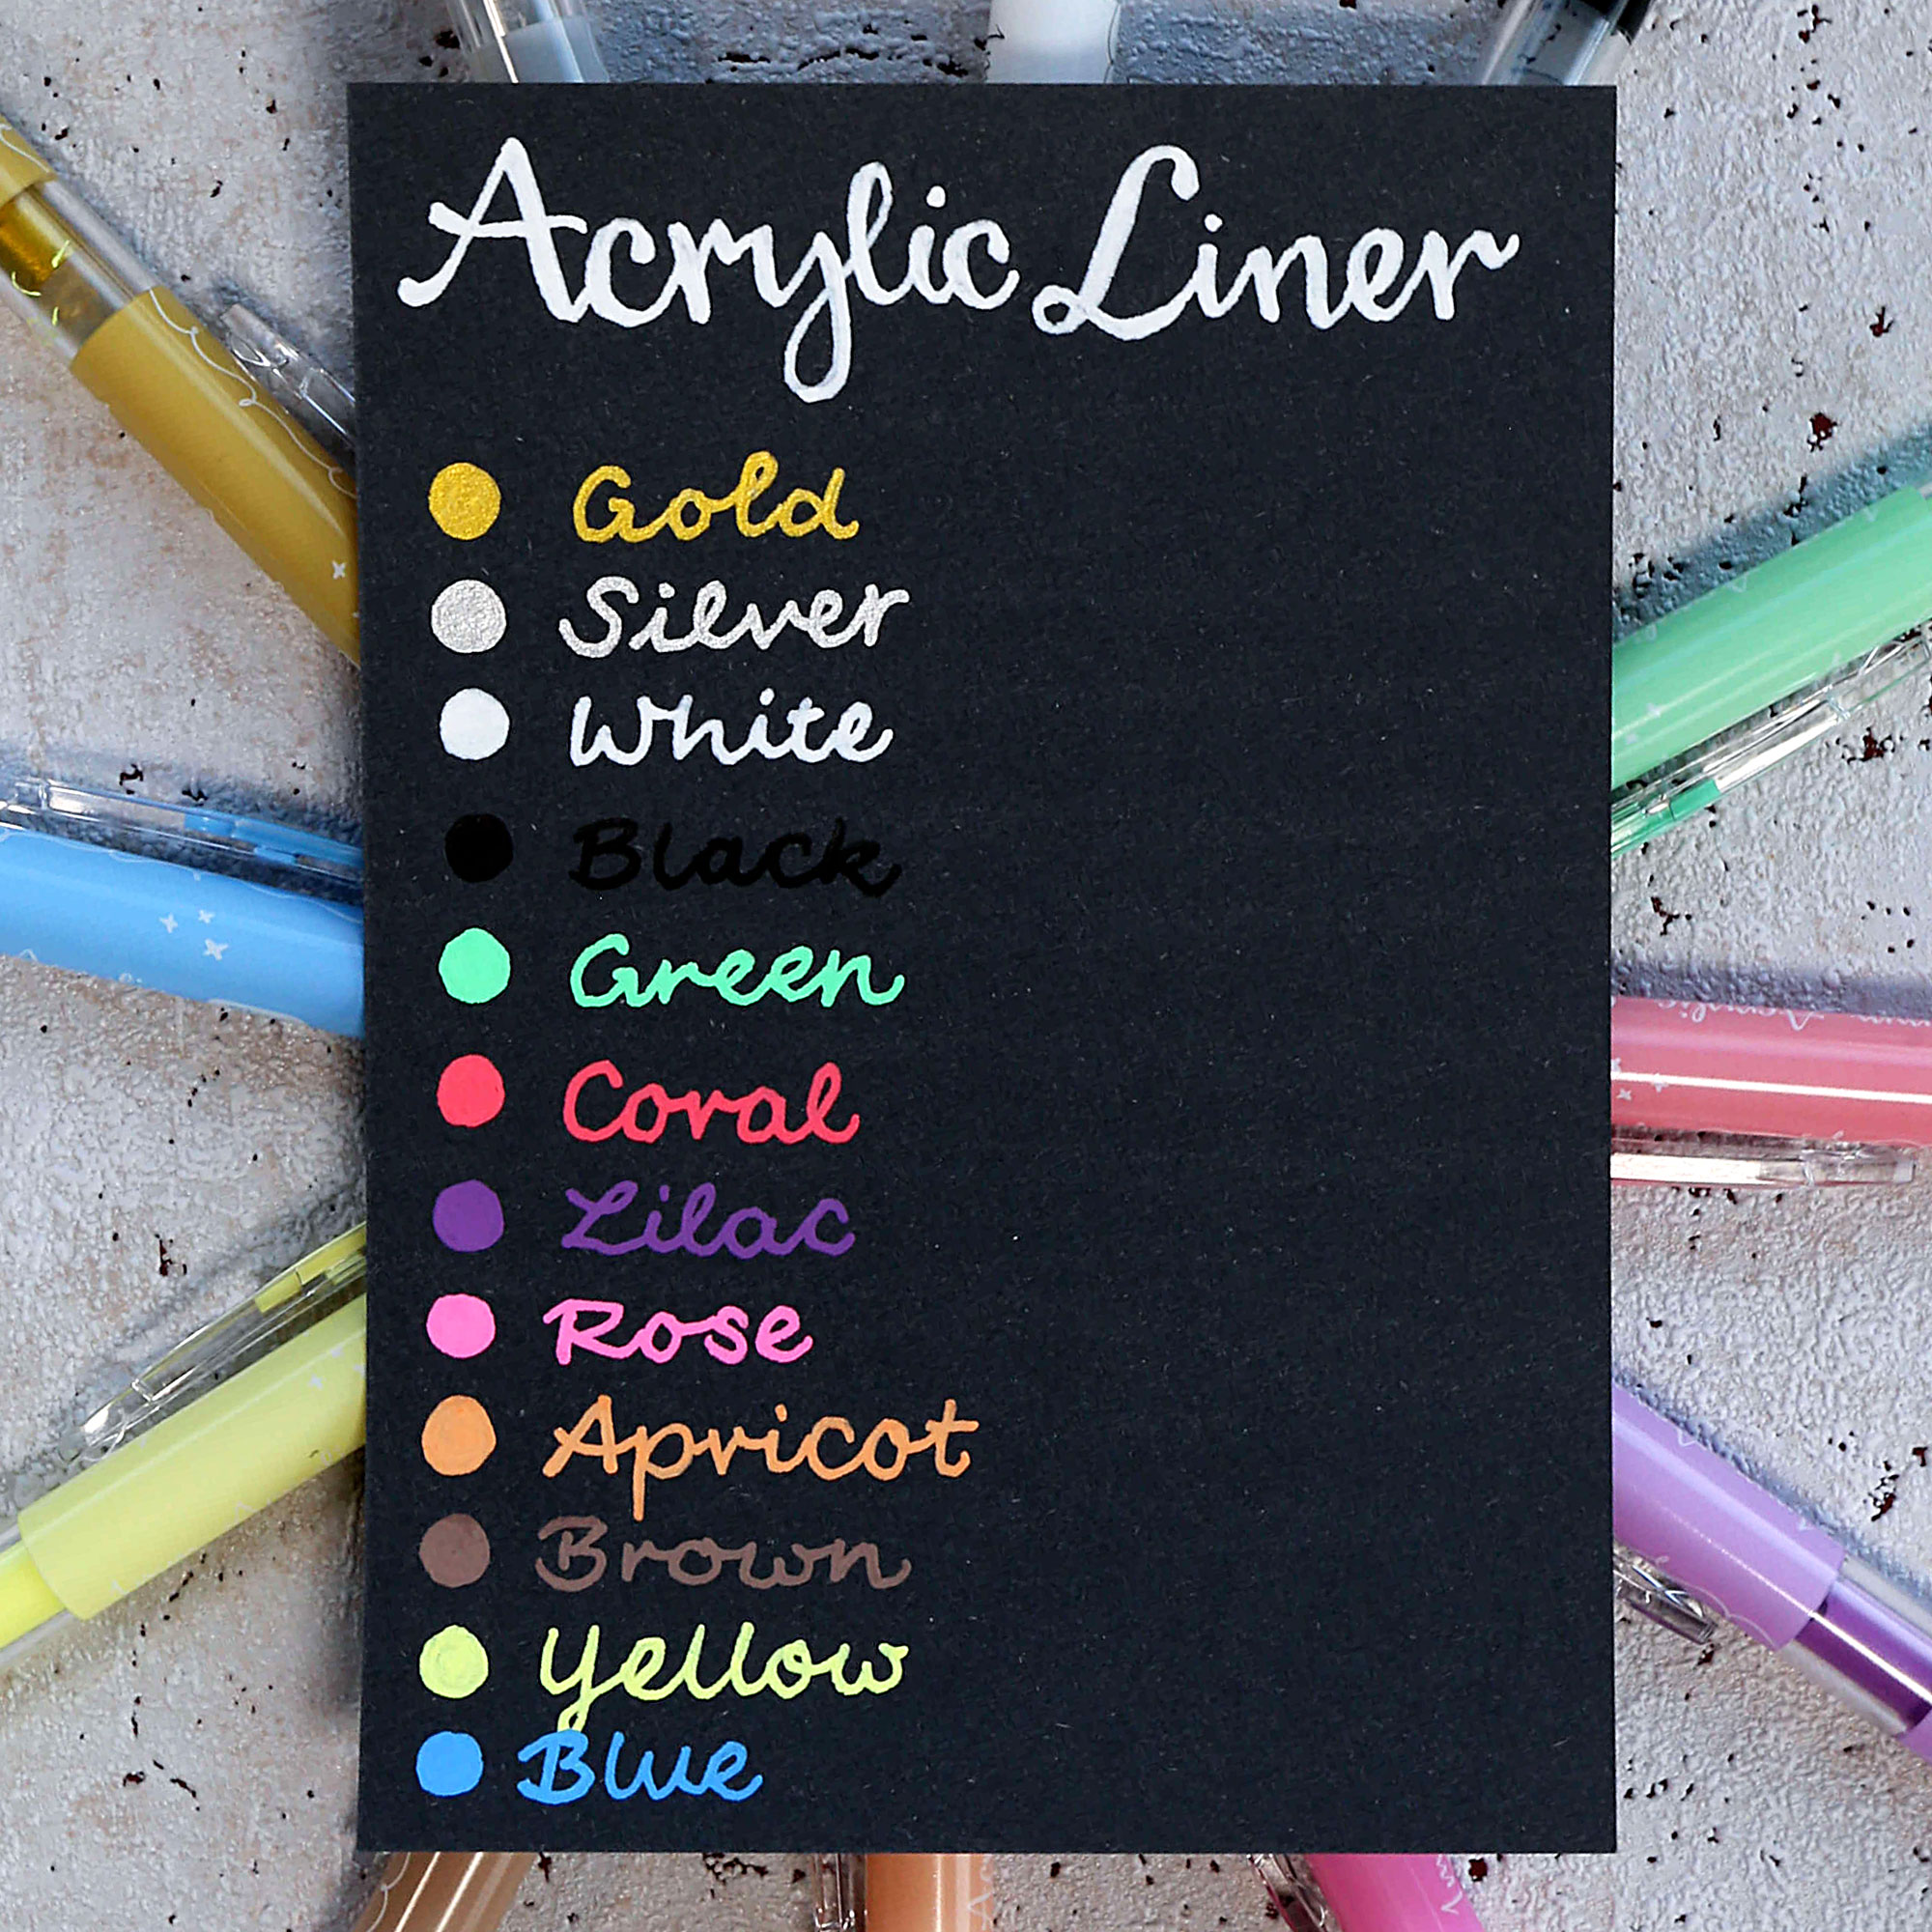 Acrylic Liner
Gold
Silver
White
Black
Green
Coral
Lilac
Rose
Apricot
Brown
Yellow
Blue